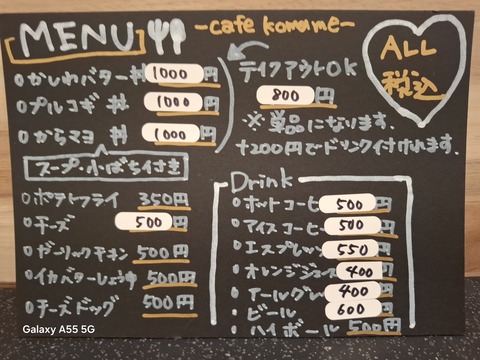 MENU
~cafe komame~
ALL
税込
○かしわバター丼 1000円
○プルコギ 丼 1000円
○からマヨ 丼 1000円
スープ・小ばち付き
テイクアウトOK
800円
※単品になります。
+200円でドリンク付けれます。
○ポテトフライ 350円
○チーズ 500円
○ガーリックチキン 500円
○イカバターしょうゆ 500円
○チーズドッグ 500円
Drink
○ホットコーヒ 500
○アイスコーヒ 500
○エスプレッ 550
○オレンジジュース 400
○アールグレ 400
○ビール 600
○ハイボール 500円
Galaxy A55 5G